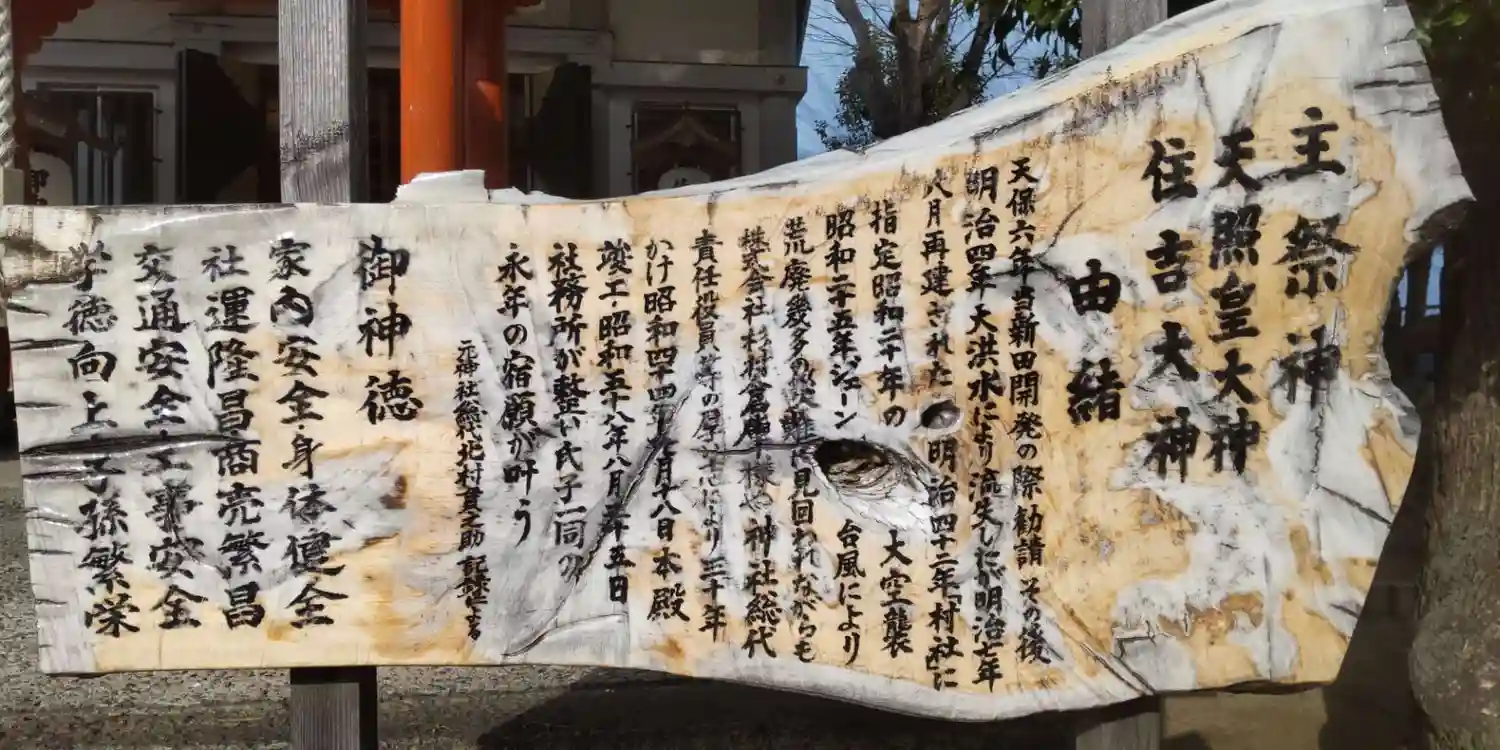 主祭神
天照皇大神
住吉大神
由緒
天保六年当新田開発の際勧請その後
明治四年大洪水により流失しだが明治七年
八月再建された 明治四十二年村社に
指定昭和二十年の 大空襲
昭和二十五年ジェーン 台風により
荒廃幾多の災難に見回われながらも
株式会社杉村倉庫様や神社総代
責任役員等の厚志により三十年
かけ昭和四十四年七月十八日本殿
竣工・昭和五十八年八月二十五日
社務所が整い氏子一同の
永年の宿願が叶う
元神社総代北村 之助 記録
御神徳
家内安全・身体健全
社運隆昌商売繁昌
交通安全工事安全
学徳向上子孫繁栄